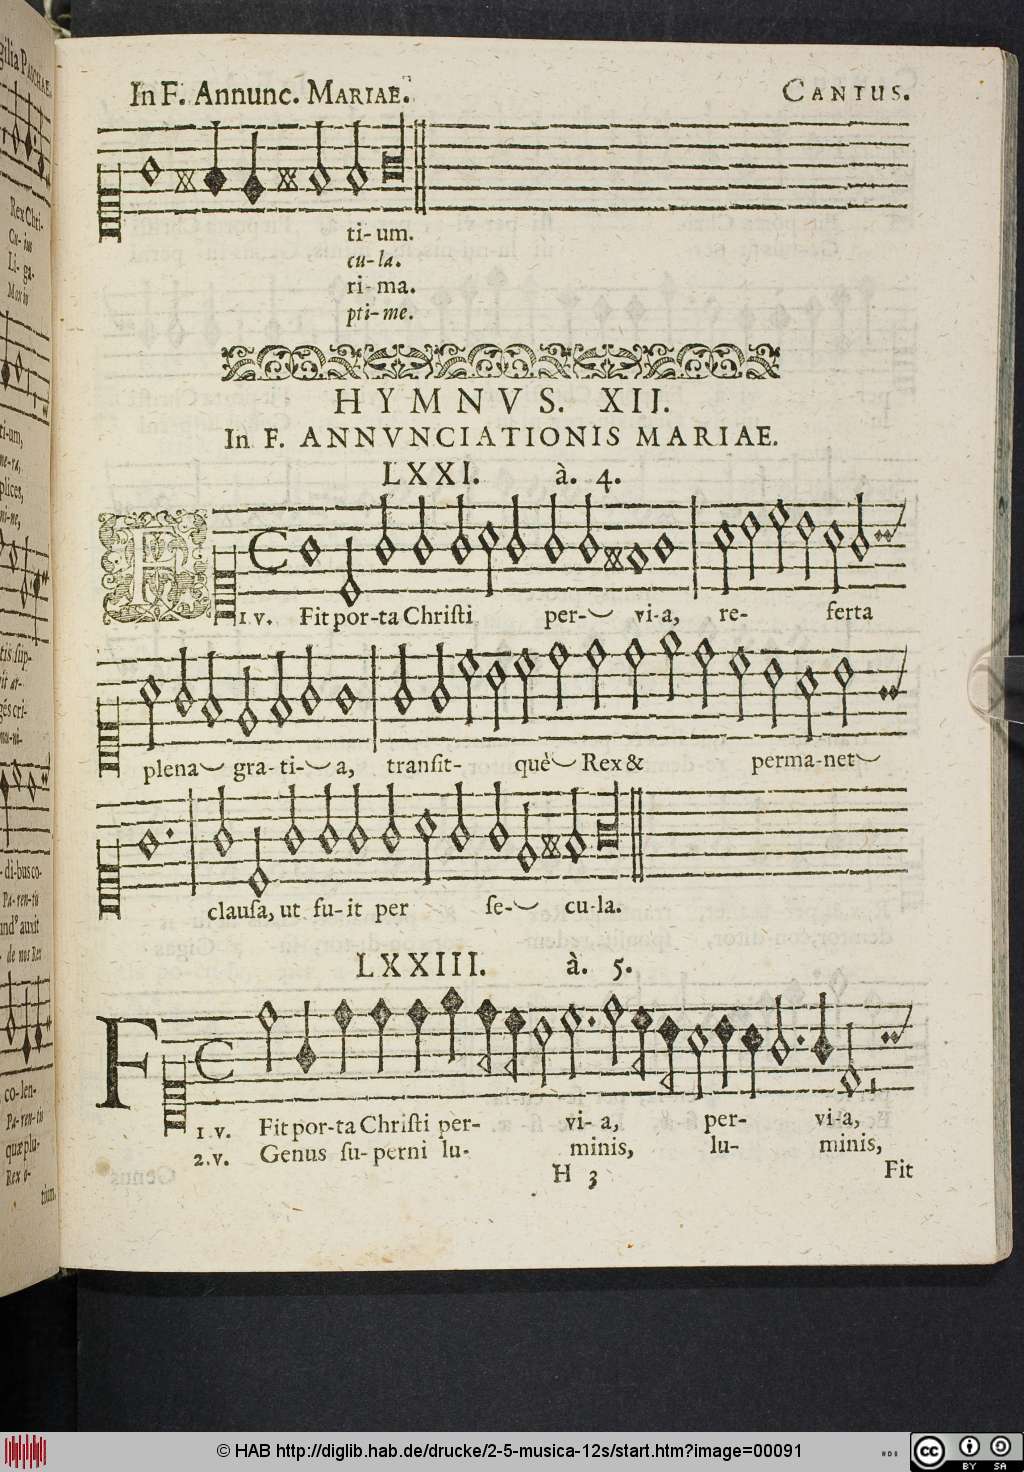 In F. Annunc. MARIAE.
CANTUS.
ti-um.
cu-la.
ri-ma.
pti-me.
HYMNVS. XII.
In F. ANNVNCIATIONIS MARIAE.
LXXI. à. 4.
F
1.v. Fit por-ta Chriſti per- vi-a, re- ferta
plena gra-ti- a, tranſit- què Rex & perma-net
clauſa, ut fu-it per ſe- cu-la.
LXXIII. à. 5.
F
1.v. Fit por-ta Chriſti per- vi- a, per- vi-a,
2.v. Genus ſu-perni lu- minis, lu- minis,
H 3
Fit
© HAB http://diglib.hab.de/drucke/2-5-musica-12s/start.htm?image=00091
cc BY SA